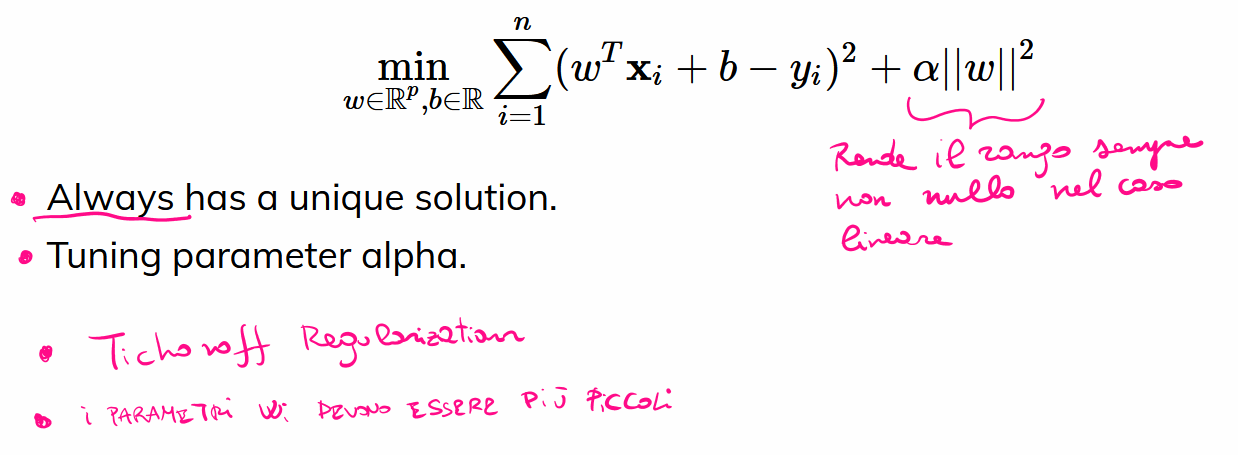 min w∈ℝᵖ,b∈ℝ ∑ i=1 n (wᵀxᵢ + b − yᵢ)² + α||w||²
Rende il rango sempre
non nullo nel caso
lineare
• Always has a unique solution.
• Tuning parameter alpha.
• Tichonoff Regularization
• i PARAMETRI wi DEVONO ESSERE PIÙ PICCOLI